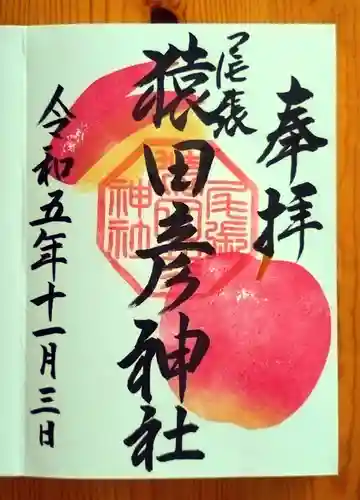 奉拝
尾張
猿田彦神社
令和五年十一月三日
尾張
猿田彦
神社